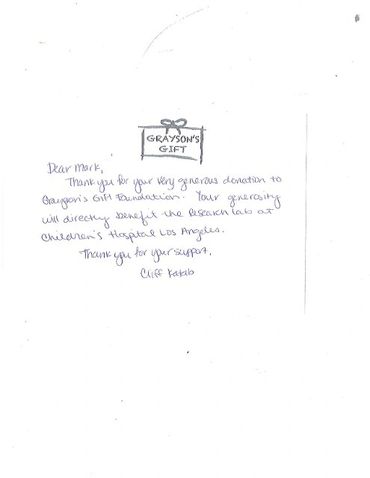 GRAYSON'S
GIFT
Dear Mark,
Thank you for your very generous donation to
Grayson's Gift Foundation. Your generosity
will directly benefit the Research lab at
Children's Hospital Los Angeles.
Thank you for your support,
Cliff Katab